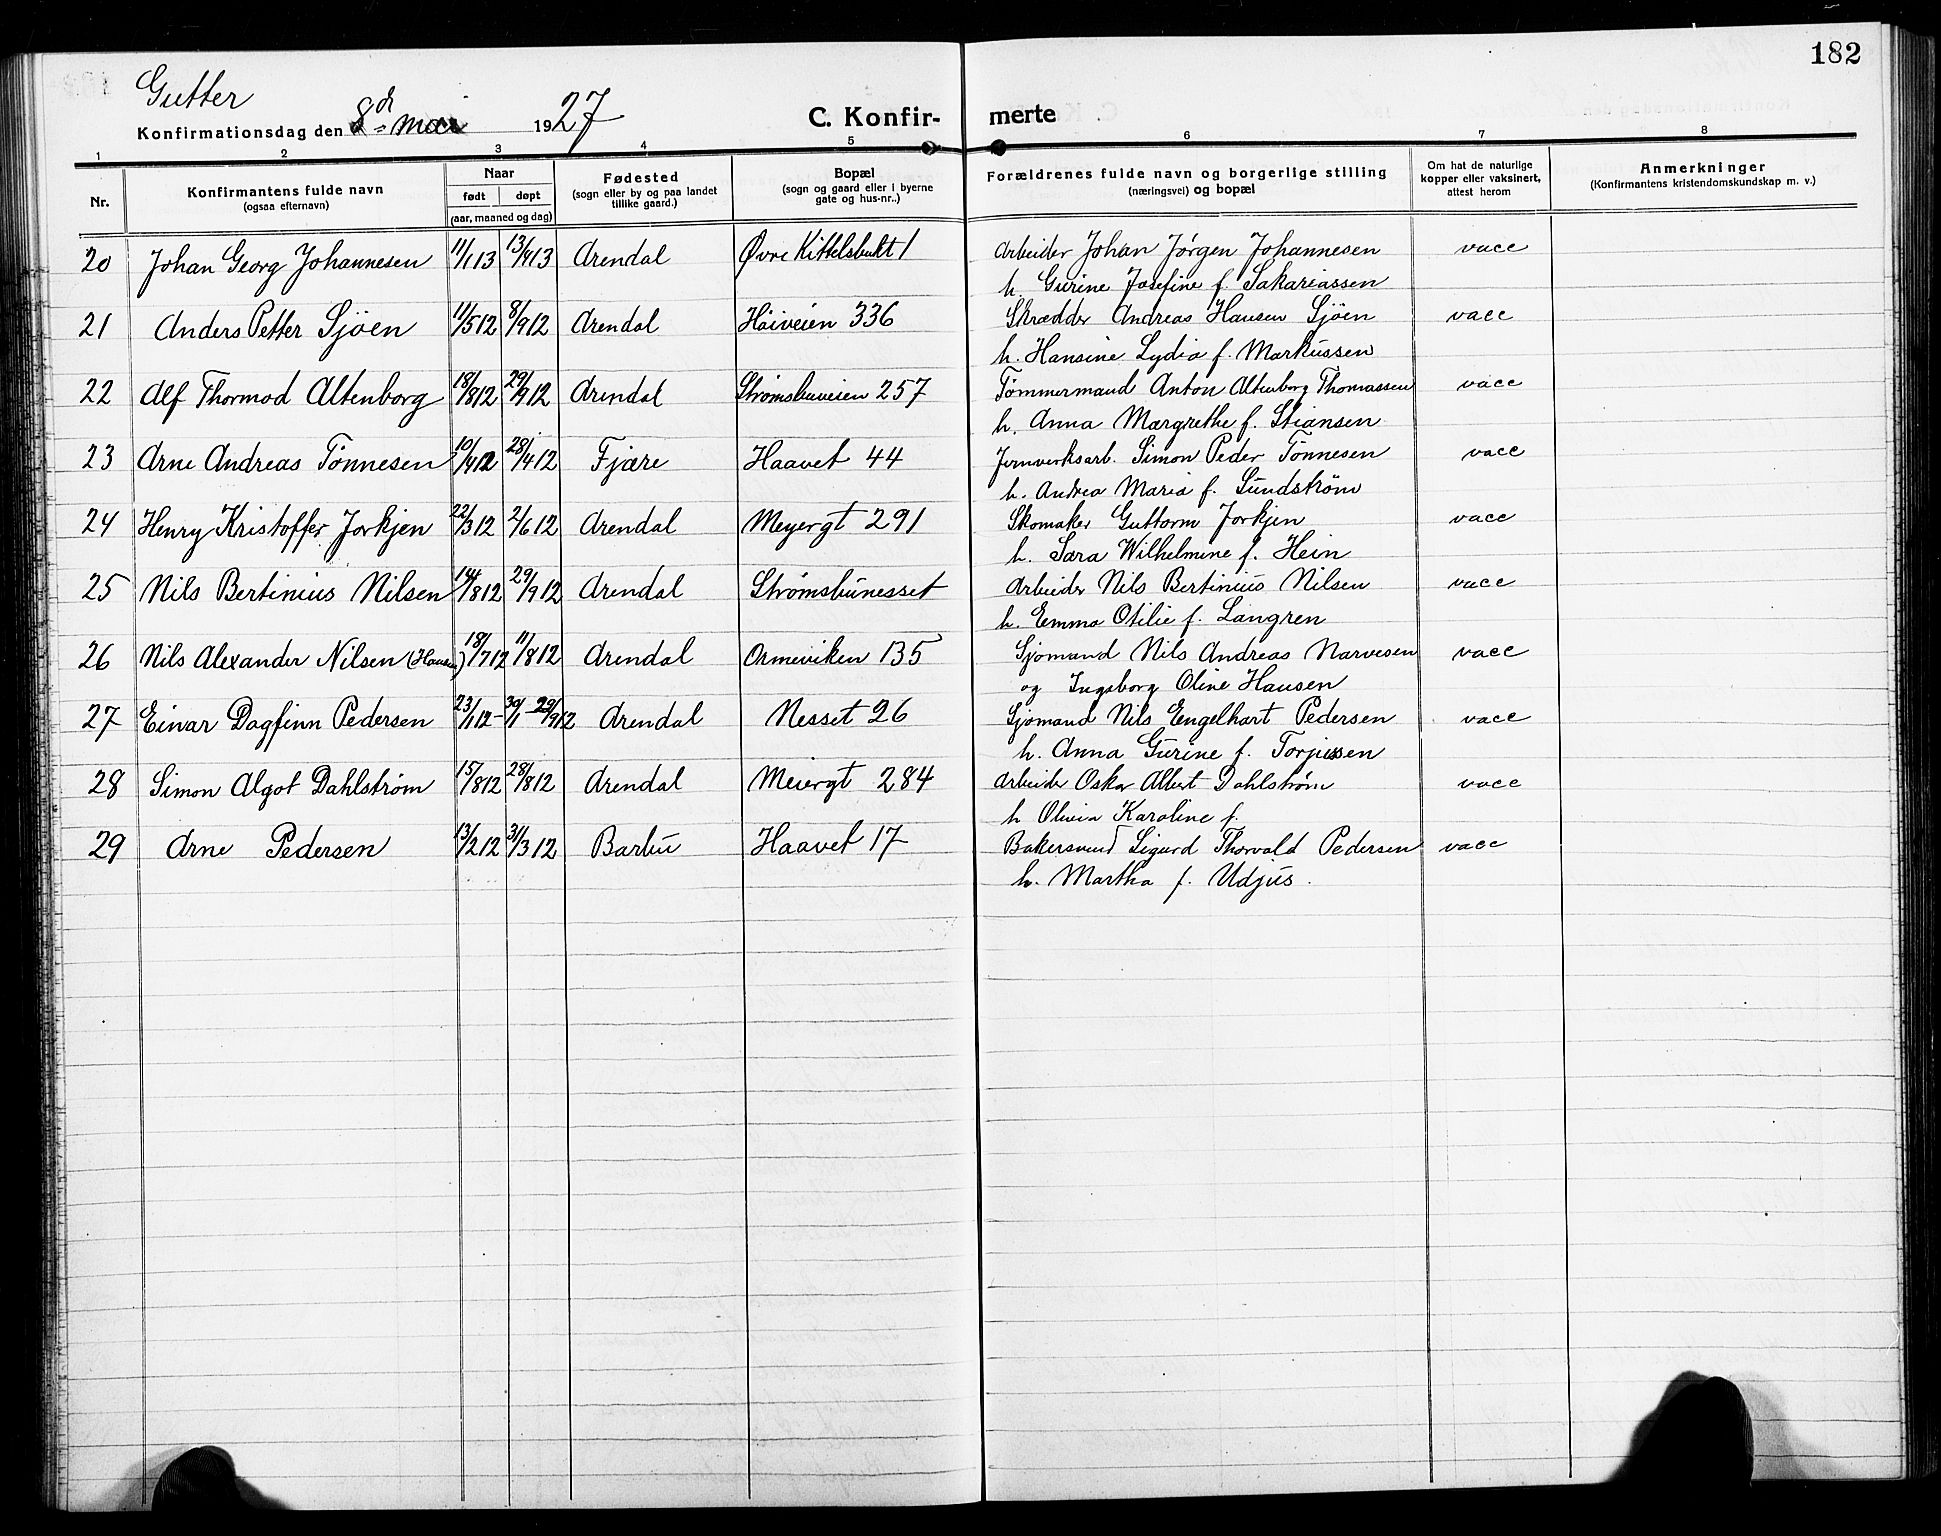 182
Gutter
Konfirmationsdag den 8d mai 1927
C. Konfirmerte
1 2 3 4 5 6 7 8
Nr.
Konfirmantens fulde navn
(ogsaa efternavn)
Naar
født døpt
(aar, maaned og dag)
Fødested
(sogn eller by og paa landet
tillike gaard.)
Bopæl
(sogn og gaard eller i byerne
gate og hus-nr..)
Forældrenes fulde navn og borgerlige stilling
(næringsvei) og bopæl
Om hat de naturlige
kopper eller vaksinert,
attest herom
Anmerkninger
(Konfirmantens kristendomskundskap m. v.)
20 Johan Georg Johannesen 11/1 13 13/4 13 Arendal Øvre Kittelsbukt 1 Arbeider Johan Jørgen Johannesen vacc
h. Gurine Josefine f. Sakariassen
21 Anders Petter Sjöen 11/5 12 8/9 12 Arendal Höiveien 336 Skrædder Andreas Hansen Sjöen vacc
h. Hansine Lydia f. Markussen
22 Alf Thormod Altenborg 18/8 12 29/9 12 Arendal Strömsbuveien 257 Tömmermand Anton Altenborg Thomassen vacc
h. Anna Margrethe f. Stiansen
23 Arne Andreas Tönnesen 10/4 12 28/4 12 Fjære Haavet 44 Jernverksarb. Simon Peder Tönnesen vacc
h. Andrea Maria f. Sundström
24 Henry Kristoffer Jorkjen 22/3 12 2/6 12 Arendal Meyergt 291 Skomaker Guttorm Jorkjen vacc
h. Sara Wilhelmine f. Hein
25 Nils Bertinius Nilsen 14/8 12 29/9 12 Arendal Strömsbunesset Arbeider Nils Bertinius Nilsen vacc
h. Emma Otilie f. Langren
26 Nils Alexander Nilsen (Hansen) 18/7 12 11/8 12 Arendal Ormeviken 135 Sjömand Nils Andreas Narvesen vacc
og Ingeborg Oline Hansen
27 Einar Dagfinn Pedersen 23/1 12 - 30/1 - 29/9 12 Arendal Nesset 26 Sjömand Nils Engelhart Pedersen vacc
h. Anna Gurine f. Torjussen
28 Simon Algot Dahlström 15/8 12 28/8 12 Arendal Meiergt 284 Arbeider Oskar Albert Dahlström vacc
h Olivia Karoline f.
29 Arne Pedersen 13/2 12 31/3 12 Barbu Haavet 17 Bakersvend Sigurd Thorvald Pedersen vacc
h. Martha f. Udjus.